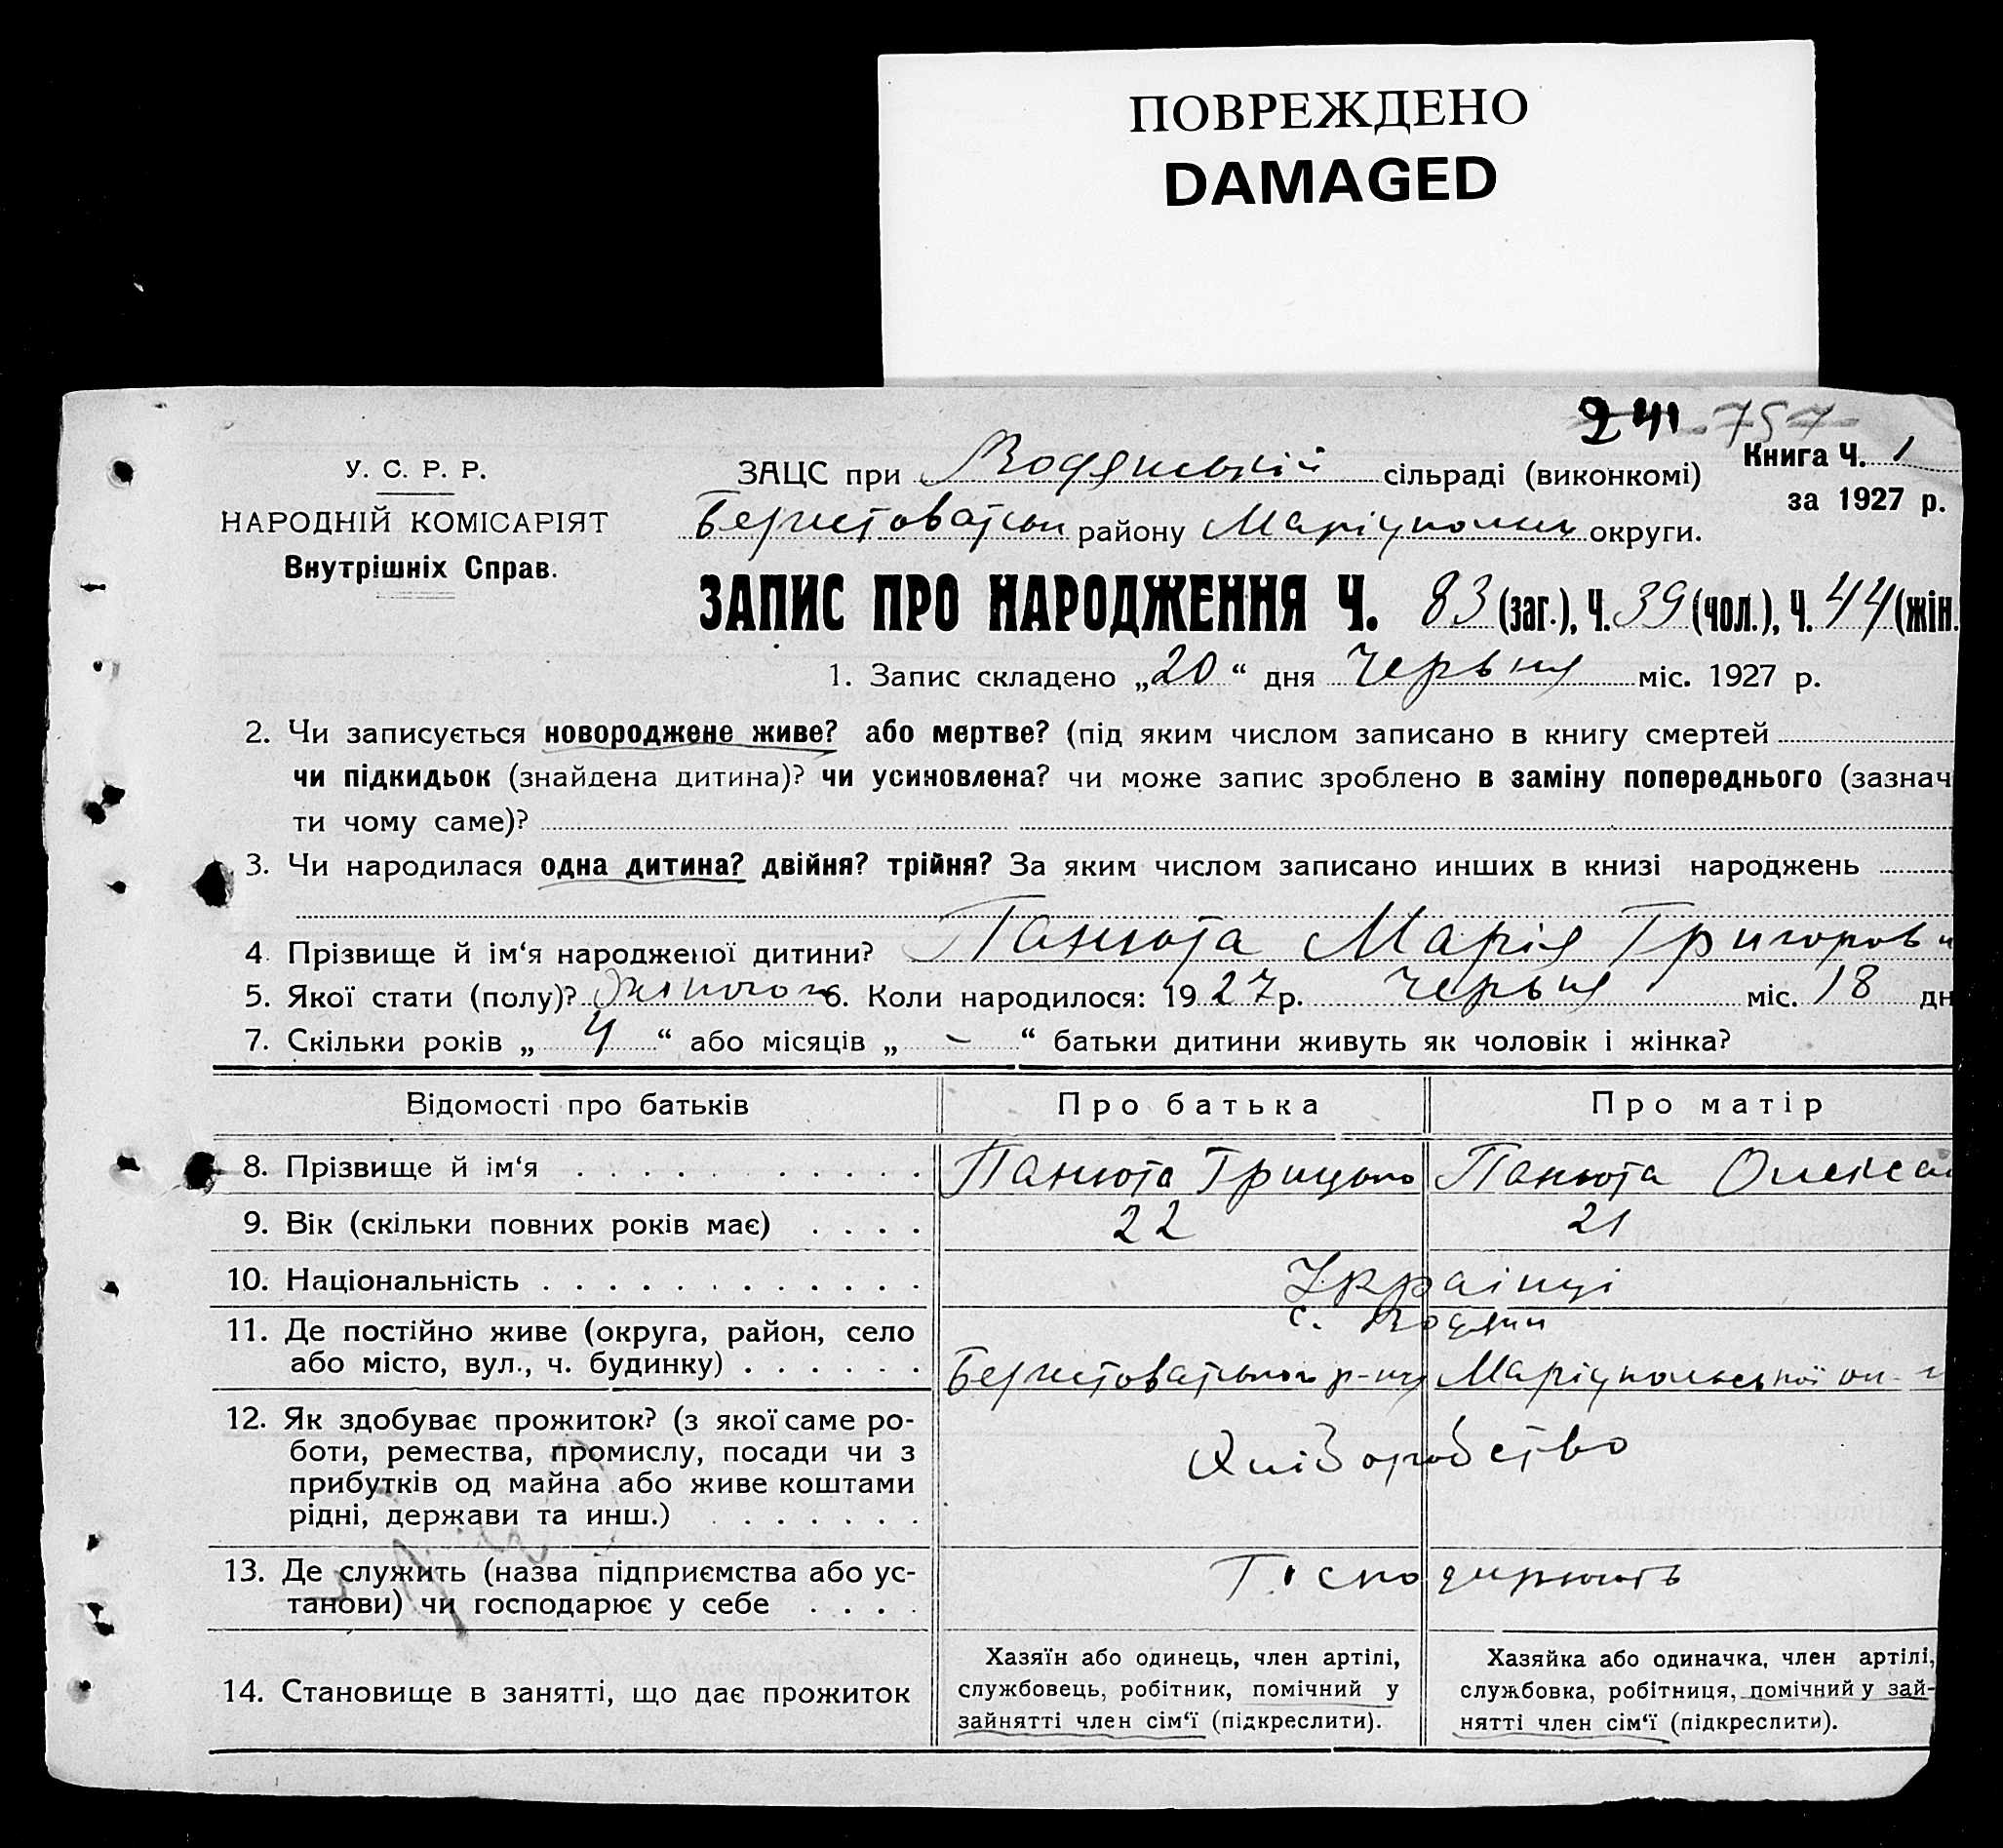 ПОВРЕЖДЕНО
DAMAGED
241 757
У. С. Р. Р.
НАРОДНІЙ КОМІСАРІЯТ
Внутрішніх Справ.
ЗАЦС при Водянській сільраді (виконкомі)
Книга Ч. 1
за 1927 р.
району округи.
ЗАПИС ПРО НАРОДЖЕННЯ Ч. 83 (заг.), Ч. 39 (чол.), Ч. 44 (жін.
1. Запис складено „20“ дня Червня міс. 1927 р.
2. Чи записується новороджене живе? або мертве? (під яким числом записано в книгу смертей
чи підкидьок (знайдена дитина)? чи усиновлена? чи може запис зроблено в заміну попереднього (зазнач
ти чому саме)?
3. Чи народилася одна дитина? двійня? трійня? За яким числом записано инших в книзі народжень
4. Прізвище й ім‘я народженої дитини? Панюта Марія Григоровн
5. Якої стати (полу)? 6. Коли народилося: 1927 р. Червня міс. 18 дн
7. Скільки років „4“ або місяців „–“ батьки дитини живуть як чоловік і жінка?
Відомості про батьків Про батька Про матір
8. Прізвище й ім‘я Панюта Грицько Панюта Олексан
9. Вік (скільки повних років має) 22 21
10. Національність Українці
11. Де постійно живе (округа, район, село
або місто, вул., ч. будинку)
с. Водяни
Берестоватського р-ну Маріупольської
12. Як здобуває прожиток? (з якої саме ро-
боти, ремества, промислу, посади чи з
прибутків од майна або живе коштами
рідні, держави та инш.)
Хліборобство
13. Де служить (назва підприємства або ус-
танови) чи господарює у себе
Господирюють
14. Становище в занятті, що дає прожиток
Хазяїн або одинець, член артілі,
службовець, робітник, помічний у
зайнятті член сім‘ї (підкреслити).
Хазяйка або одиначка, член артілі,
службовка, робітниця, помічний у зай-
нятті член сім‘ї (підкреслити).